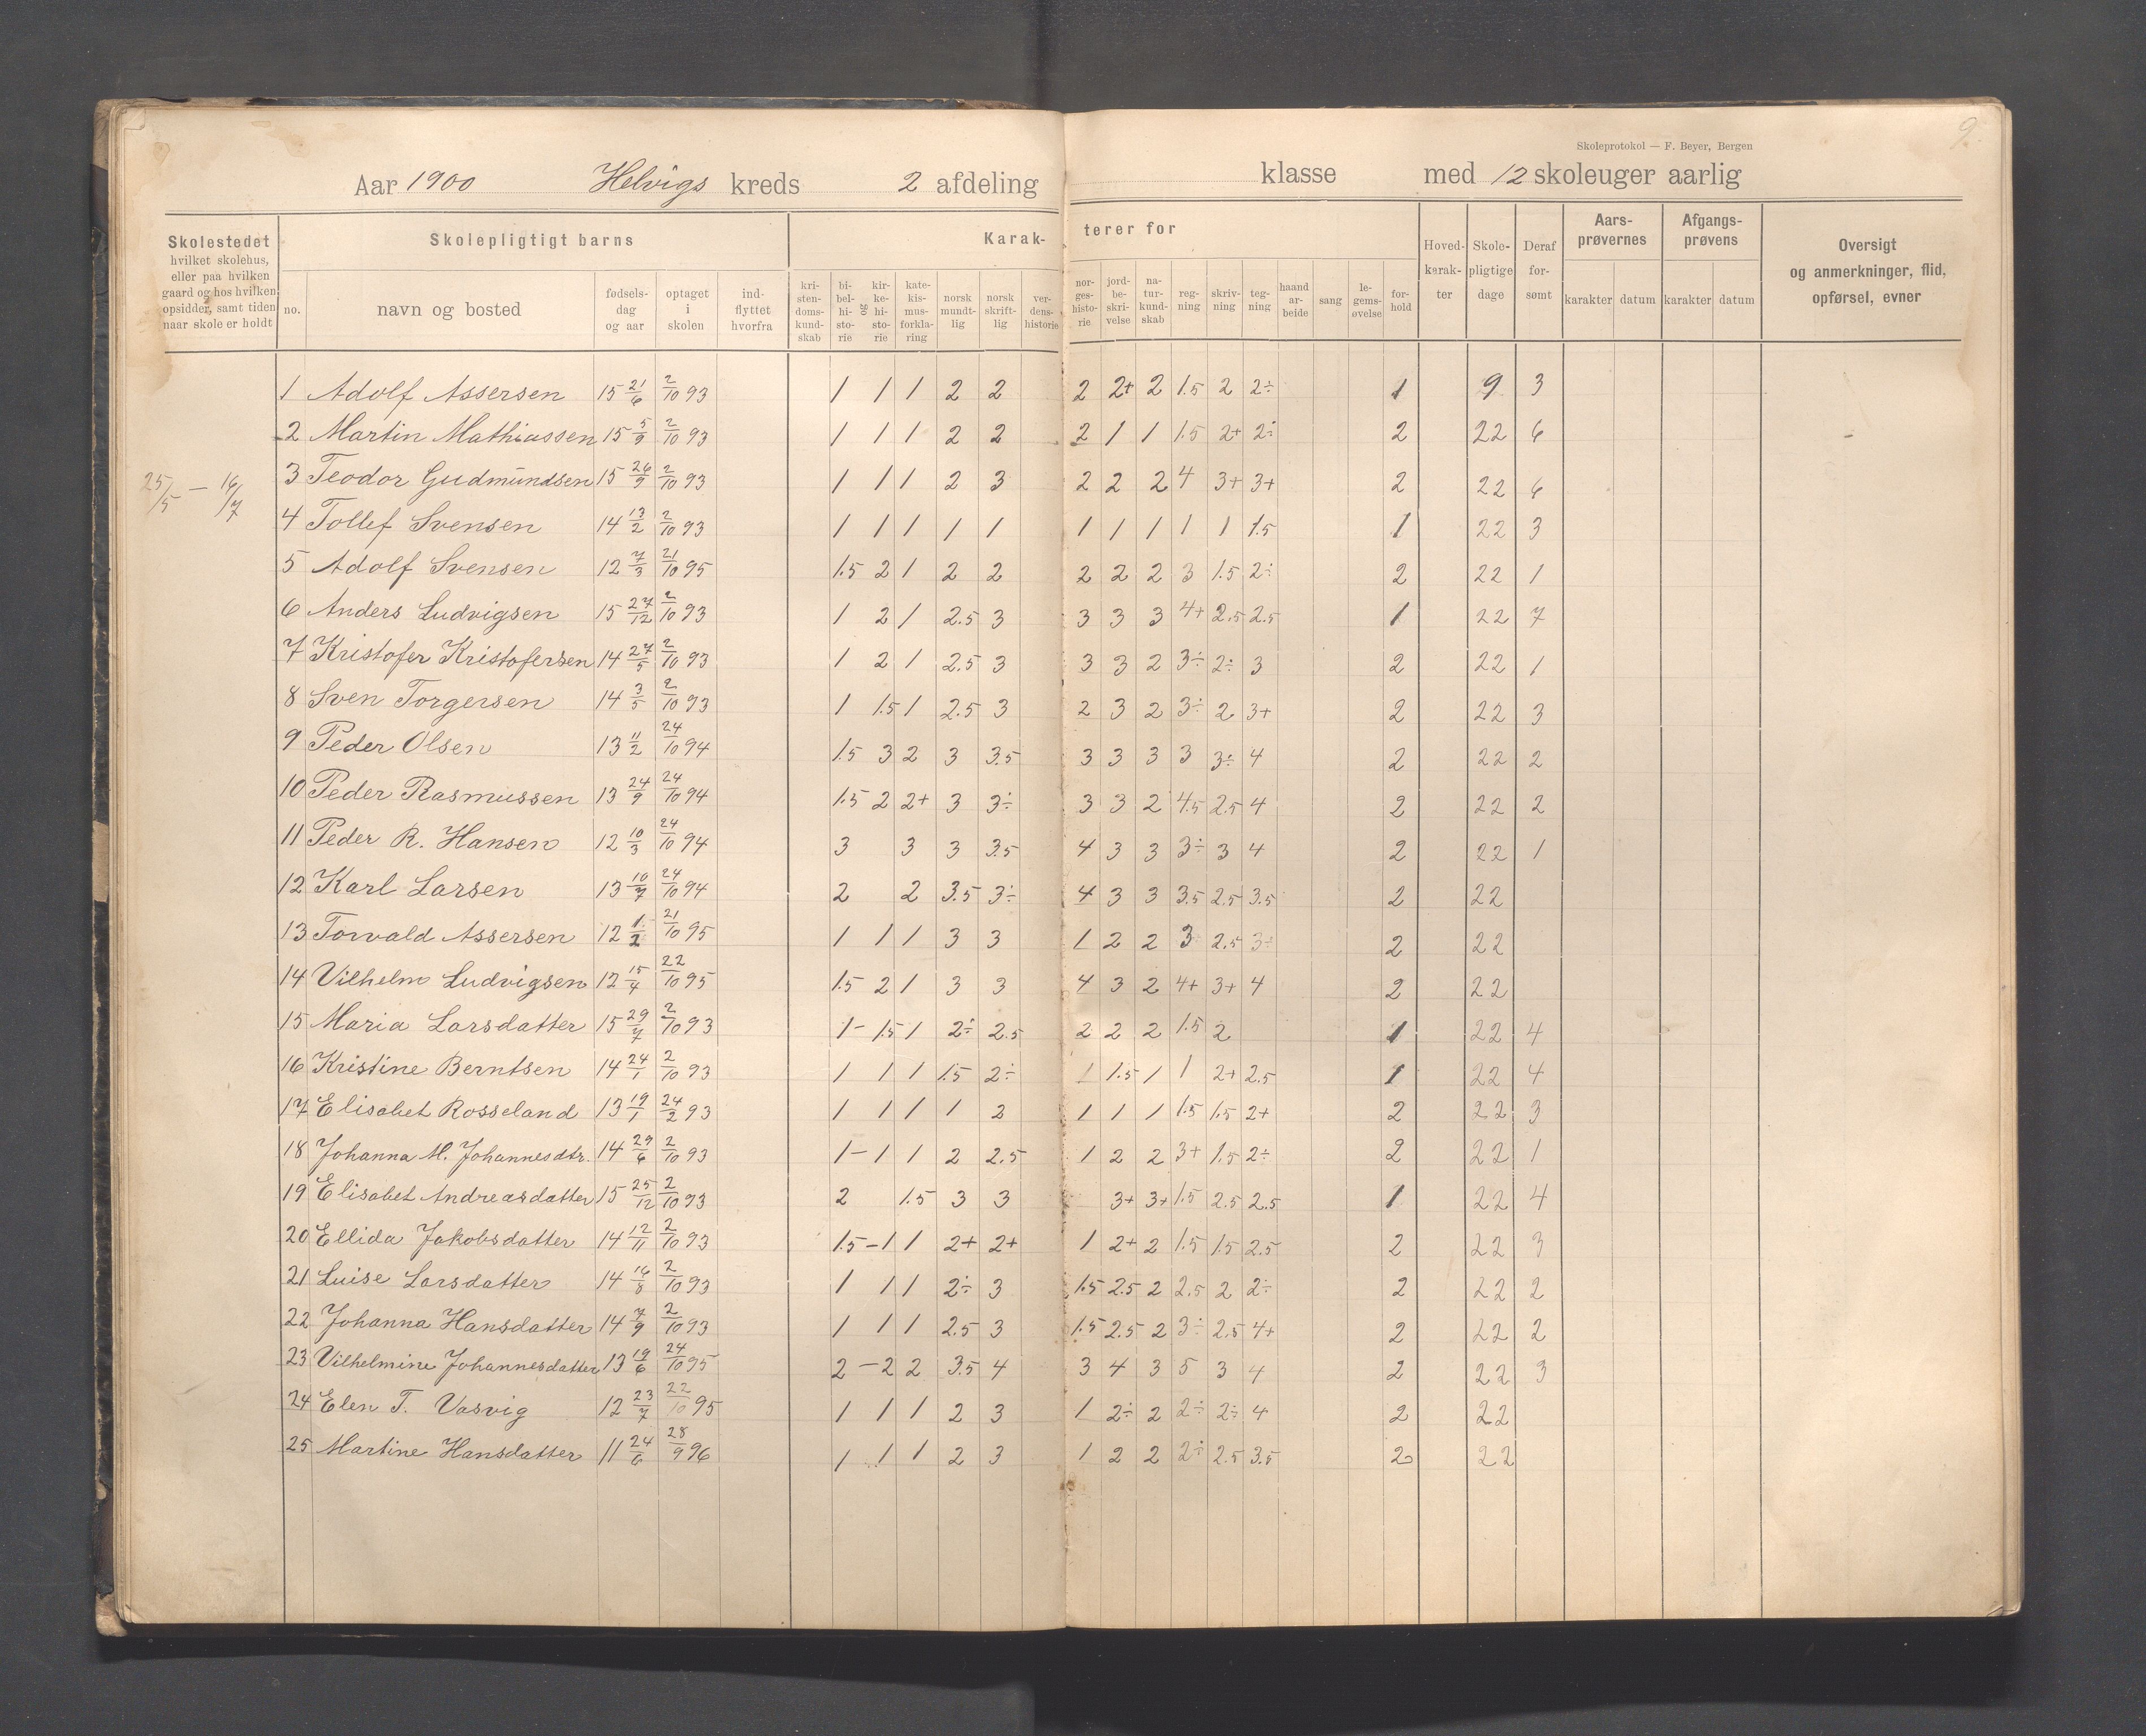 9.
Skoleprotokol — F. Beyer, Bergen
Aar 1900 Helvigs kreds 2 afdeling klasse med 12 skoleuger aarlig
Skolestedet hvilket skolehus, eller paa hvilken gaard og hos hvilken opsidder, samt tiden naar skole er holdt
Skolepligtigt barns
Karakterer for
Hovedkarakter
Skolepligtige dage
Deraf forsømt
Aarsprøvernes
Afgangsprøvens
Oversigt og anmerkninger, flid, opførsel, evner
no. navn og bosted fødselsdag og aar optaget i skolen indflyttet hvorfra kristendomskundskab bibelhistorie og kirkehistorie katekismusforklaring norsk mundtlig norsk skriftlig verdenshistorie norgeshistorie jordbeskrivelse naturkundskab regning skrivning tegning haandarbeide sang legemsøvelse forhold karakter datum karakter datum
25/5 – 16/7
1 Adolf Assersen 15 21/6 2/10 93 1 1 1 2 2 2 2+ 2 1.5 2 2÷ 1 9 3
2 Martin Mathiassen 15 5/9 2/10 93 1 1 1 2 2 2 1 1 1.5 2+ 2÷ 2 22 6
3 Teodor Gudmundsen 15 26/9 2/10 93 1 1 1 2 3 2 2 2 4 3+ 3+ 2 22 6
4 Tollef Svensen 14 13/2 2/10 93 1 1 1 1 1 1 1 1 1 1 1.5 1 22 3
5 Adolf Svensen 12 7/3 21/10 95 1.5 2 1 2 2 2 2 2 3 1.5 2÷ 2 22 1
6 Anders Ludvigsen 15 27/12 2/10 93 1 2 1 2.5 3 3 3 3 4+ 2.5 2.5 1 22 7
7 Kristofer Kristofersen 14 27/5 2/10 93 1 2 1 2.5 3 3 3 2 3÷ 2÷ 3 2 22 1
8 Sven Torgersen 14 3/5 2/10 93 1 1.5 1 2.5 3 2 3 2 3÷ 2 3+ 2 22 3
9 Peder Olsen 13 11/2 24/10 94 1.5 3 2 3 3.5 3 3 3 3 3÷ 4 2 22 2
10 Peder Rasmussen 13 24/9 24/10 94 1.5 2 2+ 3 3÷ 3 3 2 4.5 2.5 4 2 22 2
11 Peder R. Hansen 12 10/3 24/10 94 3 3 3 3.5 4 3 3 3÷ 3 4 2 22 1
12 Karl Larsen 13 10/7 24/10 94 2 2 3.5 3÷ 4 3 3 3.5 2.5 3.5 2 22
13 Torvald Assersen 12 1/2 21/10 95 1 1 1 3 3 1 2 2 3 2.5 3÷ 2 22
14 Vilhelm Ludvigsen 12 15/4 22/10 95 1.5 2 1 3 3 4 3 2 4+ 3+ 4 2 22
15 Maria Larsdatter 15 29/7 2/10 93 1 – 1.5 1 2÷ 2.5 2 2 2 1.5 2 1 22 4
16 Kristine Berntsen 14 24/1 2/10 93 1 1 1 1.5 2÷ 1 1.5 1 1 2+ 2.5 1 22 4
17 Elisabet Rosseland 13 19/1 24/2 93 1 1 1 1 2 1 1 1 1.5 1.5 2+ 2 22 3
18 Johanna M. Johannesdtr. 14 29/6 2/10 93 1 – 1 1 2 2.5 1 2 2 3+ 1.5 2÷ 2 22 1
19 Elisabet Andreasdatter 15 25/12 2/10 93 2 1.5 3 3 3+ 3+ 1.5 2.5 2.5 1 22 4
20 Ellida Jakobsdatter 14 12/11 2/10 93 1.5 – 1 1 2+ 2+ 1 2+ 2 1.5 1.5 2.5 2 22 3
21 Luise Larsdatter 14 16/8 2/10 93 1 1 1 2÷ 3 1.5 2.5 2 2.5 2 2÷ 2 22 2
22 Johanna Hansdatter 14 7/9 2/10 93 1 1 1 2.5 3 1.5 2.5 2 3÷ 2.5 4+ 2 22 2
23 Vilhelmine Johannesdatter 13 19/6 24/10 95 2 – 2 2 3.5 4 3 4 3 5 3 4 2 22 3
24 Elen T. Vasvig 12 23/7 22/10 95 1 1 1 2 3 1 2÷ 2 2÷ 2÷ 4 2 22
25 Martine Hansdatter 11 24/6 28/9 96 1 1 1 2 3 1 2 2 2÷ 2.5 3.5 2 22